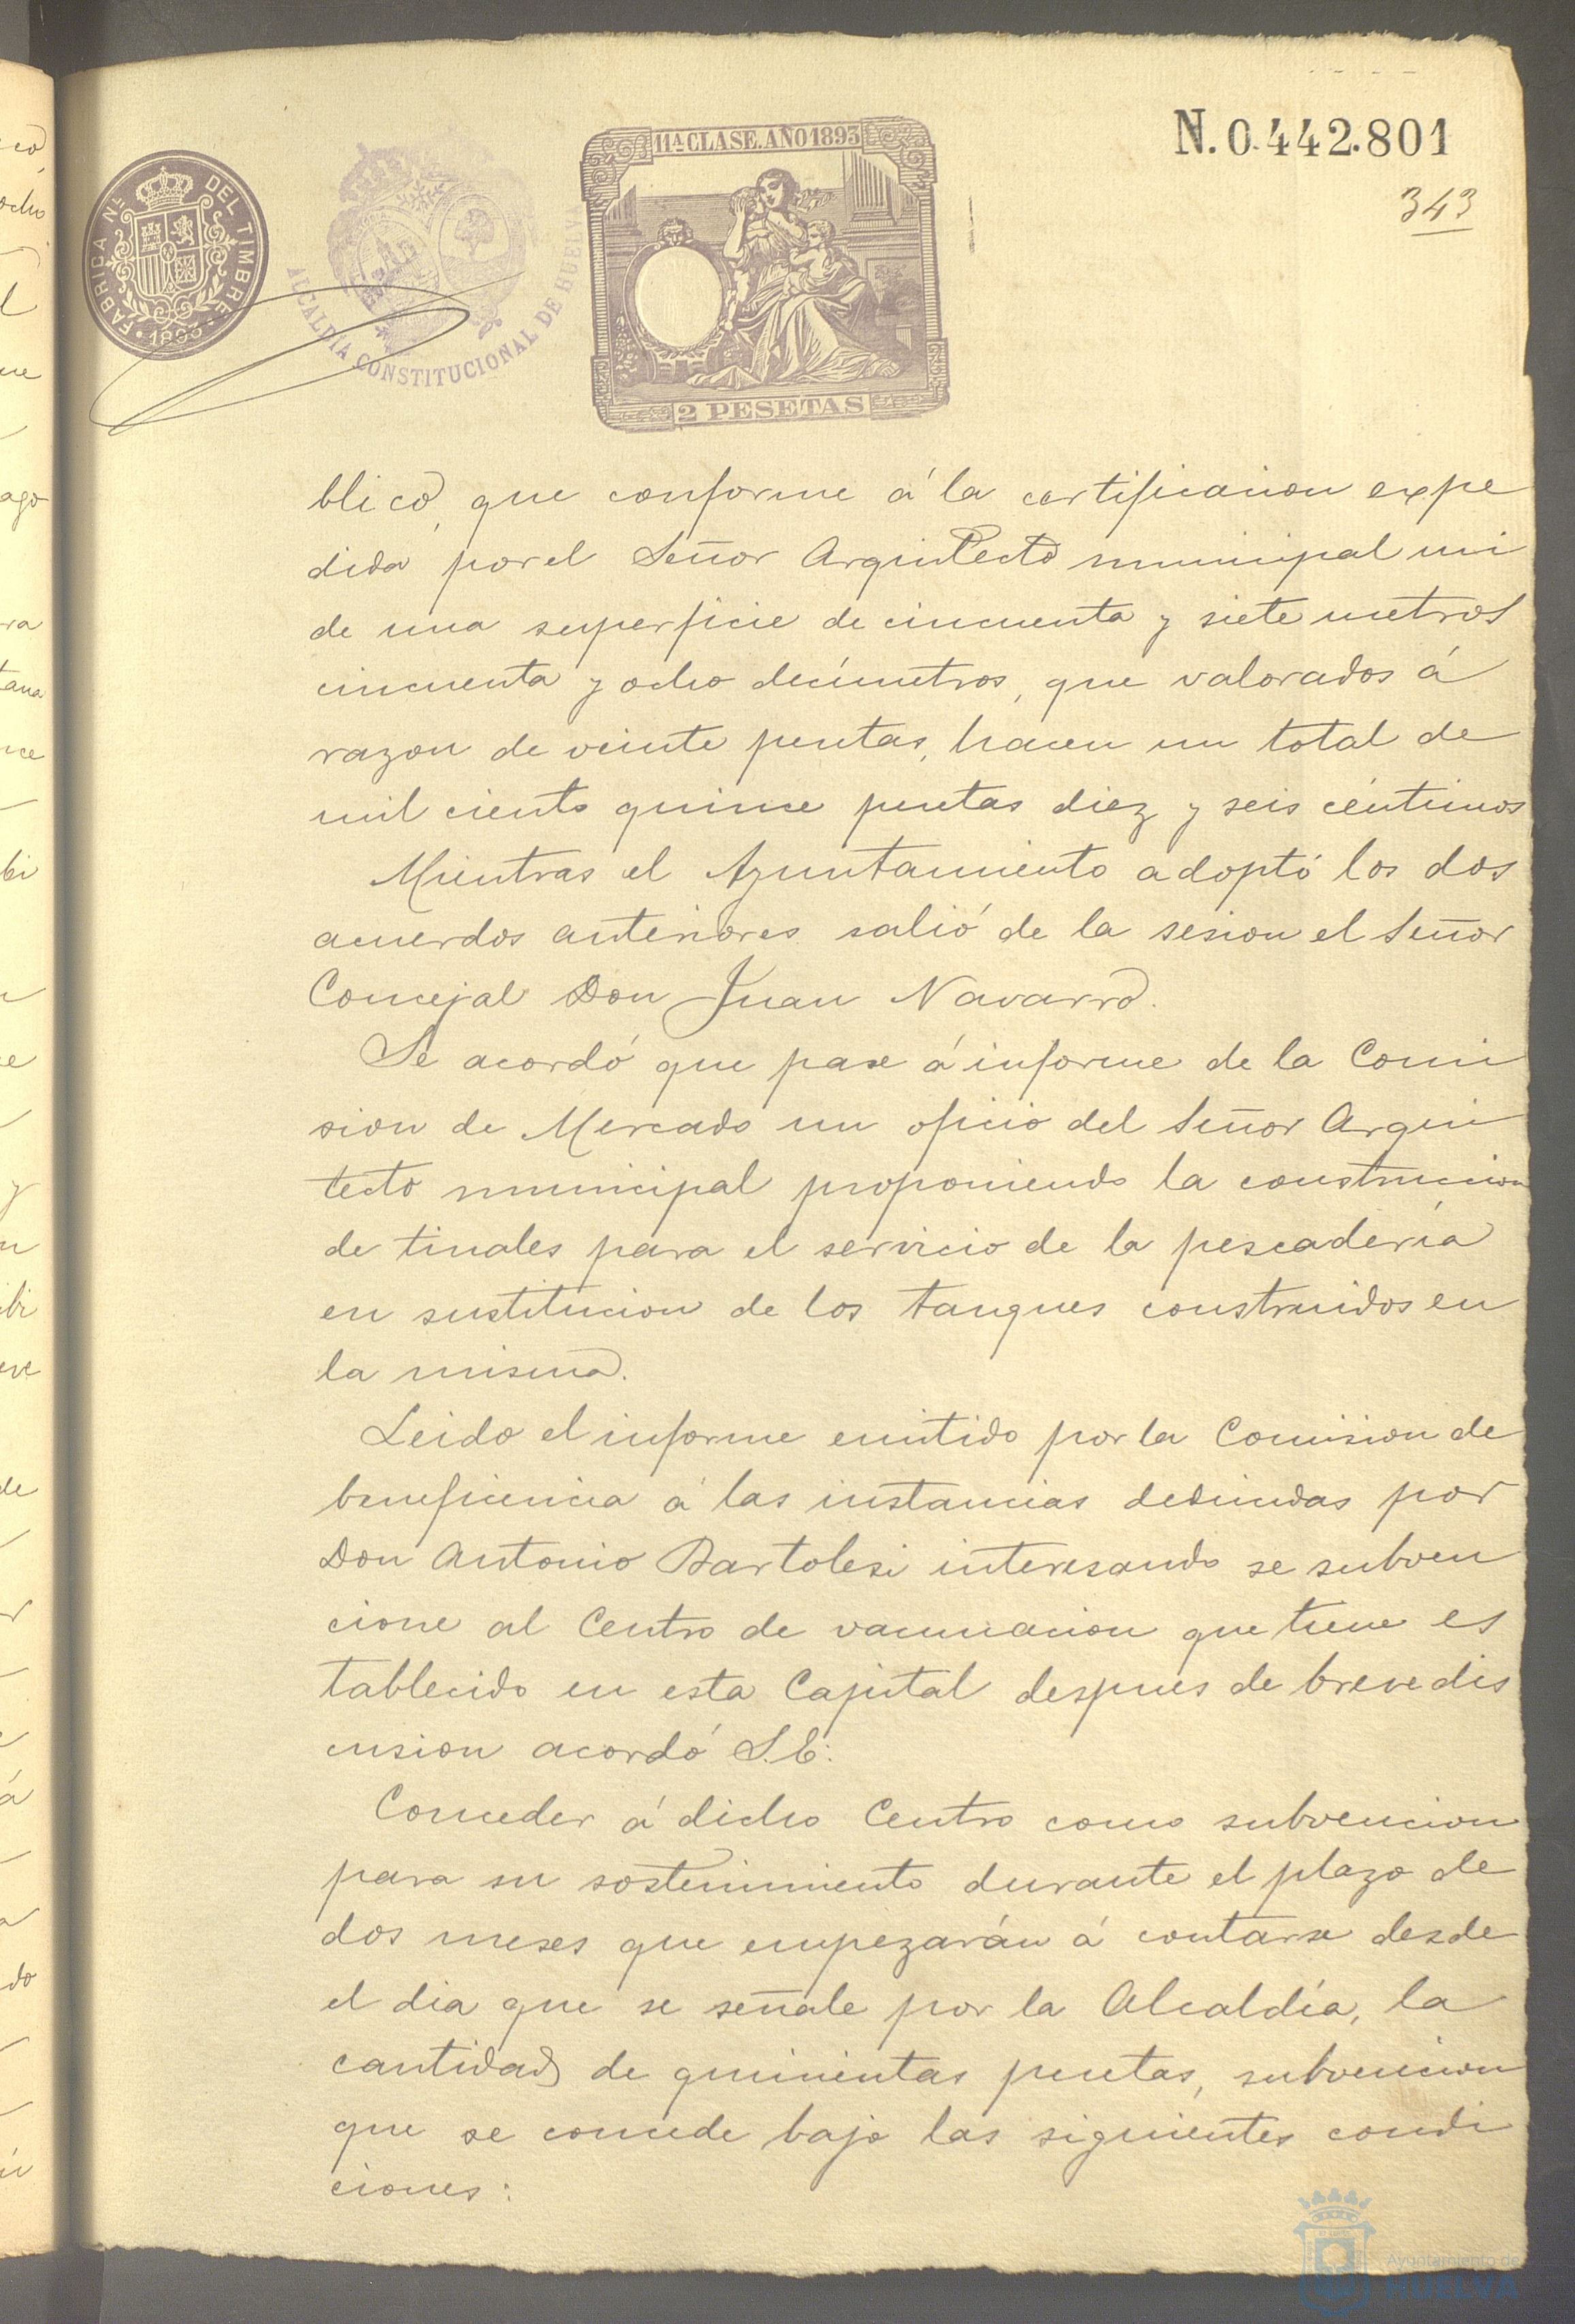 N. 0.442.801
343
11ª CLASE. AÑO 1893
FABRICA Nº DEL TIMBRE
1893
ALCALDIA CONSTITUCIONAL DE HUELVA
2 PESETAS
blico, que conforme á la certificacion expe
dida por el Señor Arquitecto municipal mi
de una superficie de cincuenta y siete metros
cincuenta y ocho decímetros, que valorados á
razon de veinte pesetas, hacen un total de
mil ciento quince pesetas diez y seis céntimos
Mientras el Ayuntamiento adoptó los dos
acuerdos anteriores salió de la sesion el Señor
Concejal Don Juan Navarro.
Se acordó que pase á informe de la Comi
sion de Mercado un oficio del Señor Arqui
tecto municipal proponiendo la construccion
de tinales para el servicio de la pescadería
en sustitucion de los tanques construidos en
la misma.
Leido el informe emitido por la Comision de
beneficencia á las instancias deducidas por
Don Antonio Bartolesi interesando se subven
cione al Centro de vacunacion que tiene es
tablecido en esta Capital despues de breve dis
cusion acordó S.E:
Conceder á dicho Centro como subvencion
para su sostenimiento durante el plazo de
dos meses que empezarán á contarse desde
el dia que se señale por la Alcaldía, la
cantidad de quinientas pesetas, subvencion
que se concede bajo las siguientes condi
ciones:
Ayuntamiento de
HUELVA